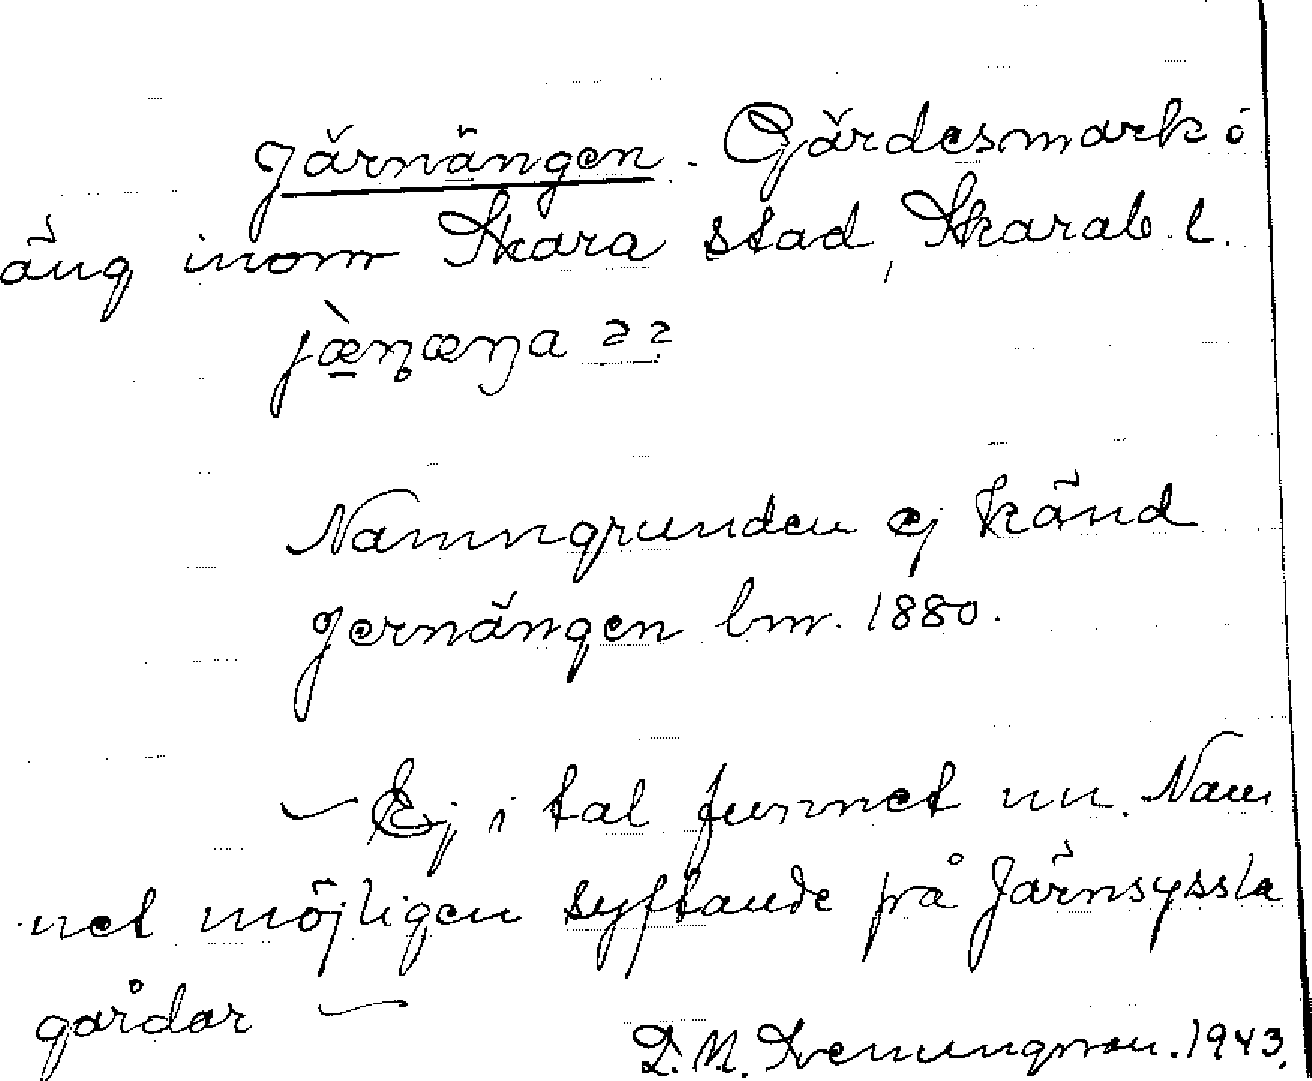 Järnängen. Gärdesmark o
äng inom Skara stad, Skarab. l.
jæ̀ṇæŋa 22
Namngrunden ej känd
Jernängen bm. 1880.
— Ej i tal funnet nu. Nam
net möjligen syftande på Järnsyssla
gårdar —
D. N. 1943.